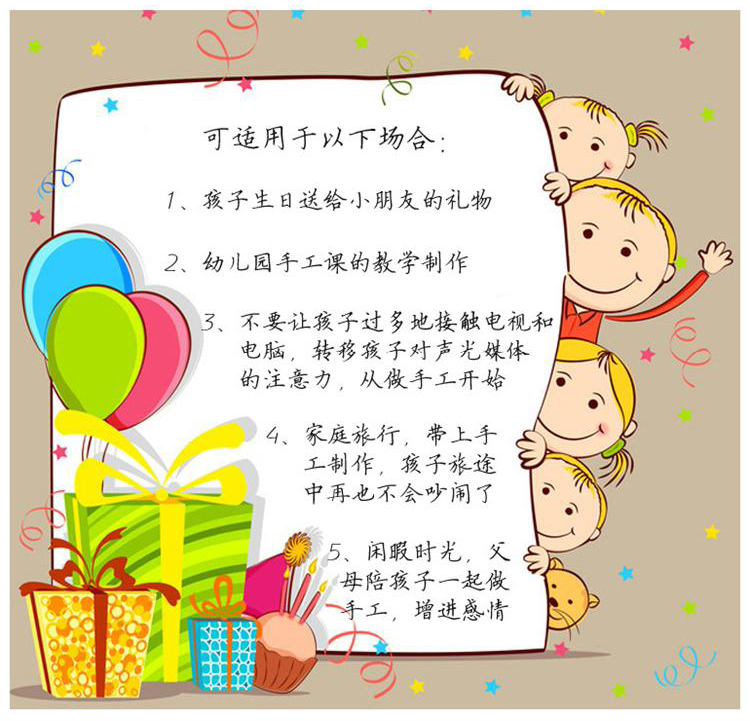 可适用于以下场合：
1、孩子生日送给小朋友的礼物
2、幼儿园手工课的教学制作
3、不要让孩子过多地接触电视和
电脑，转移孩子对声光媒体
的注意力，从做手工开始
4、家庭旅行，带上手
工制作，孩子旅途
中再也不会吵闹了
5、闲暇时光，父
母陪孩子一起做
手工，增进感情